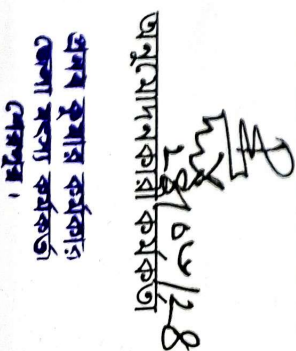 অনুমোদনকারী কর্মকর্তা
প্রণব কুমার কর্মকার
জেলা মৎস্য কর্মকর্তা
শেরপুর।